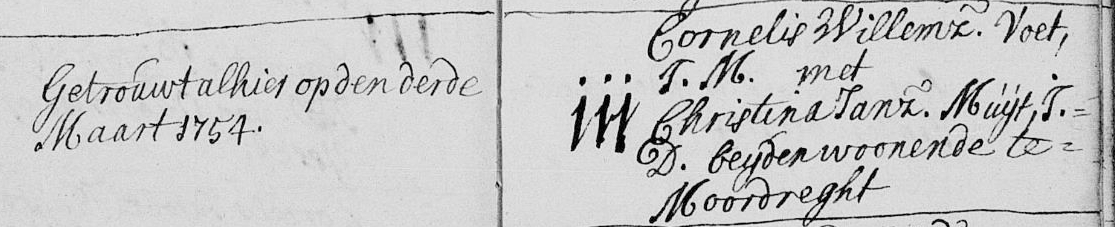 Getrouwt alhier op den derde
Maart 1754.
Cornelis Willemz. Voet,
J. M. met
iii
Christina Janz. Muÿt, J.=
D. beyden woonende te=
Moordreght